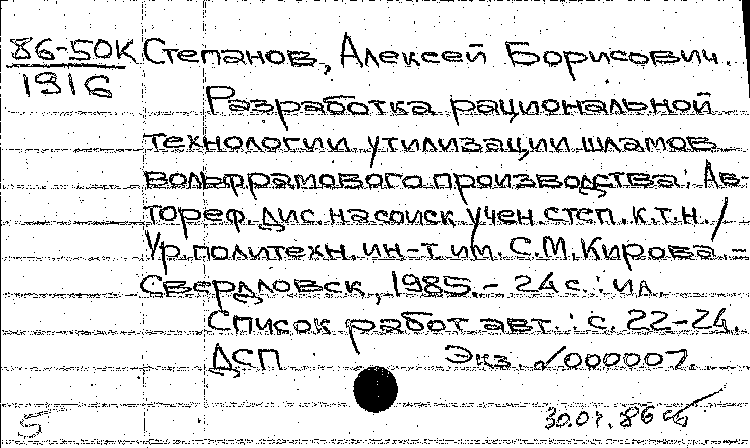 86-50К Степанов, Алексей Борисович.
1916
Разработка рациональной
технологии утилизации шламов
вольфрамового производства: Ав-
тореф. дис. на соиск учен. степ. к.т.н. /
Ур. политехн. ин-т им. С.М. Кирова. –
Свердловск, 1985. – 24 с. : ил.
Список работ авт.: с. 22–24.
ДСП Экз. 000007.
5